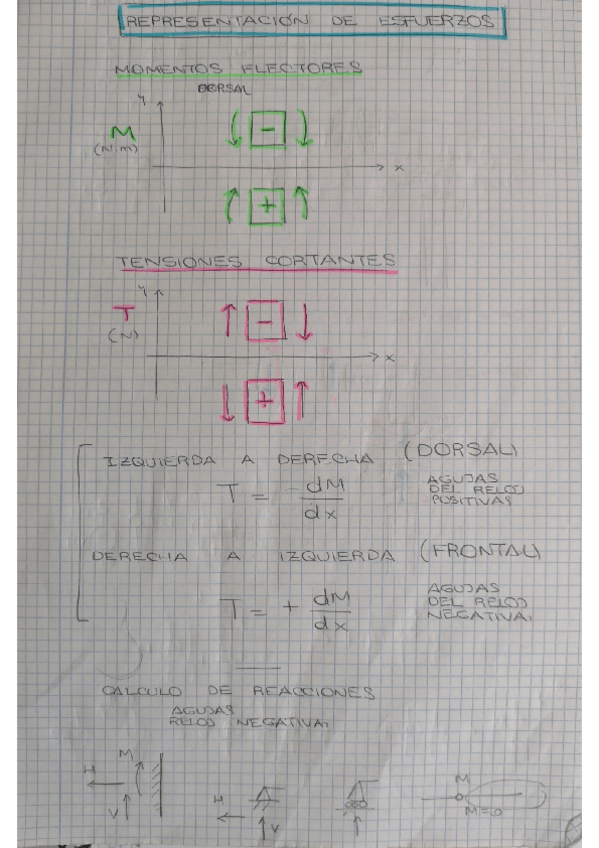 REPRESENTACIÓN DE ESFUERZOS
MOMENTOS FLECTORES
DORSAL
y
M
(N·m)
-
x
+
TENSIONES CORTANTES
y
T
(N)
-
x
+
IZQUIERDA A DERECHA (DORSAL)
T = - dM/dx
AGUJAS
DEL RELOJ
POSITIVAS
DERECHA A IZQUIERDA (FRONTAL)
T = + dM/dx
AGUJAS
DEL RELOJ
NEGATIVA.
CALCULO DE REACCIONES
AGUJAS
RELOJ NEGATIVA.
H
M
V
H
V
M
M=0